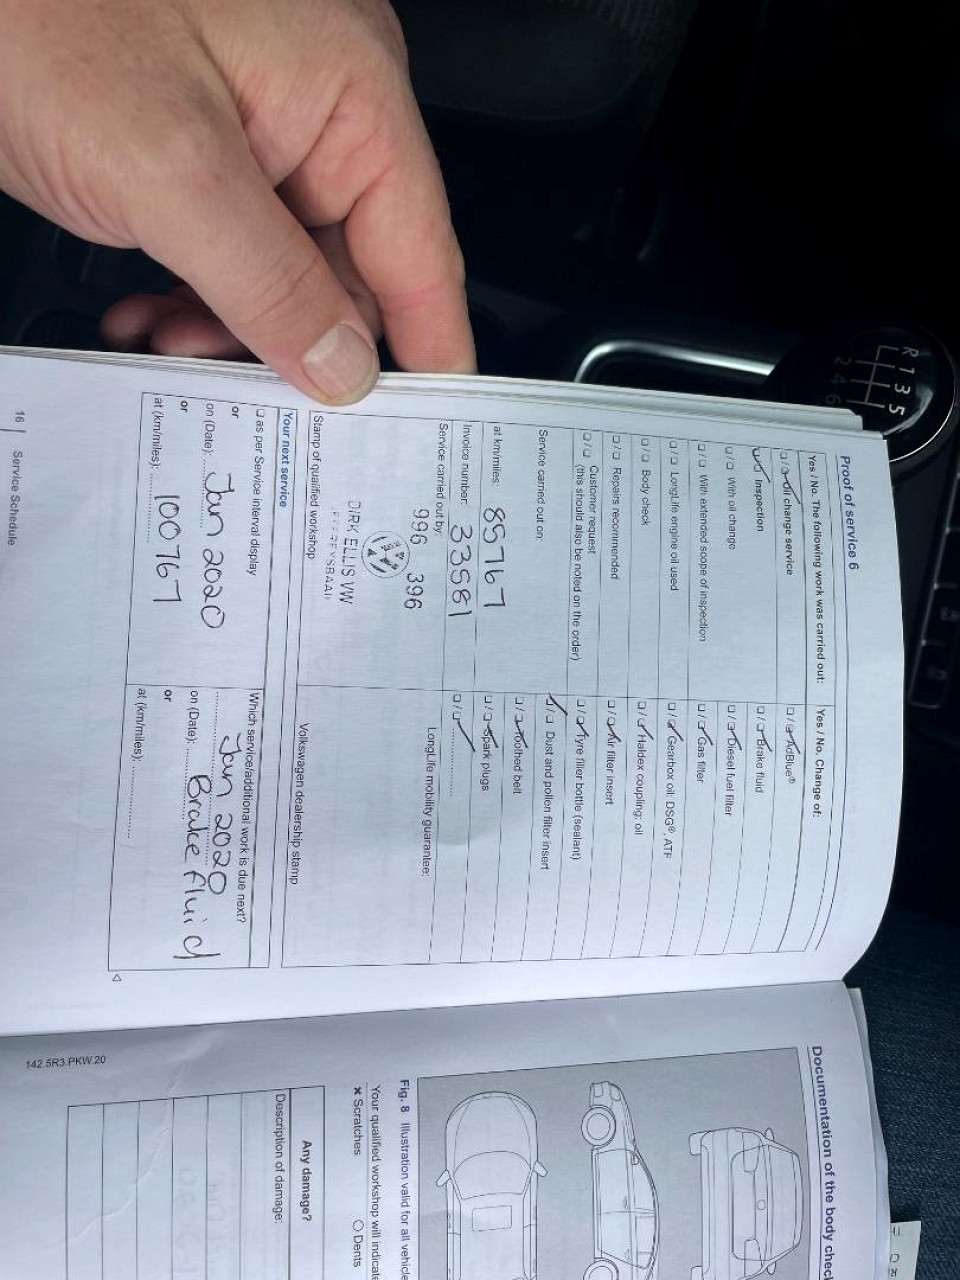 Proof of service 6
Yes / No. The following work was carried out:
Oil change service
Inspection
With oil change
With extended scope of inspection
LongLife engine oil used
Body check
Repairs recommended
Customer request
(this should also be noted on the order)
Service carried out on:
at km/miles: 85767
Invoice number: 33581
Service carried out by:
996 396
DIRK ELLIS VW
Stamp of qualified workshop
Yes / No. Change of:
AdBlue®
Brake fluid
Diesel fuel filter
Gas filter
Gearbox oil: DSG®, ATF
Haldex coupling: oil
Air filter insert
Tyre filler bottle (sealant)
Dust and pollen filter insert
Toothed belt
Spark plugs
LongLife mobility guarantee:
Volkswagen dealership stamp
Your next service
as per Service interval display
or
on (Date): Jan 2020
or
at (km/miles): 100767
Which service/additional work is due next?
Jan 2020
on (Date): Brake fluid
or
at (km/miles):
16 | Service Schedule
142.5R3.PKW.20
Documentation of the body chec
Fig. 8 Illustration valid for all vehicle
Your qualified workshop will indicate
× Scratches O Dents
Any damage?
Description of damage:
R 1 3 5
2 4 6